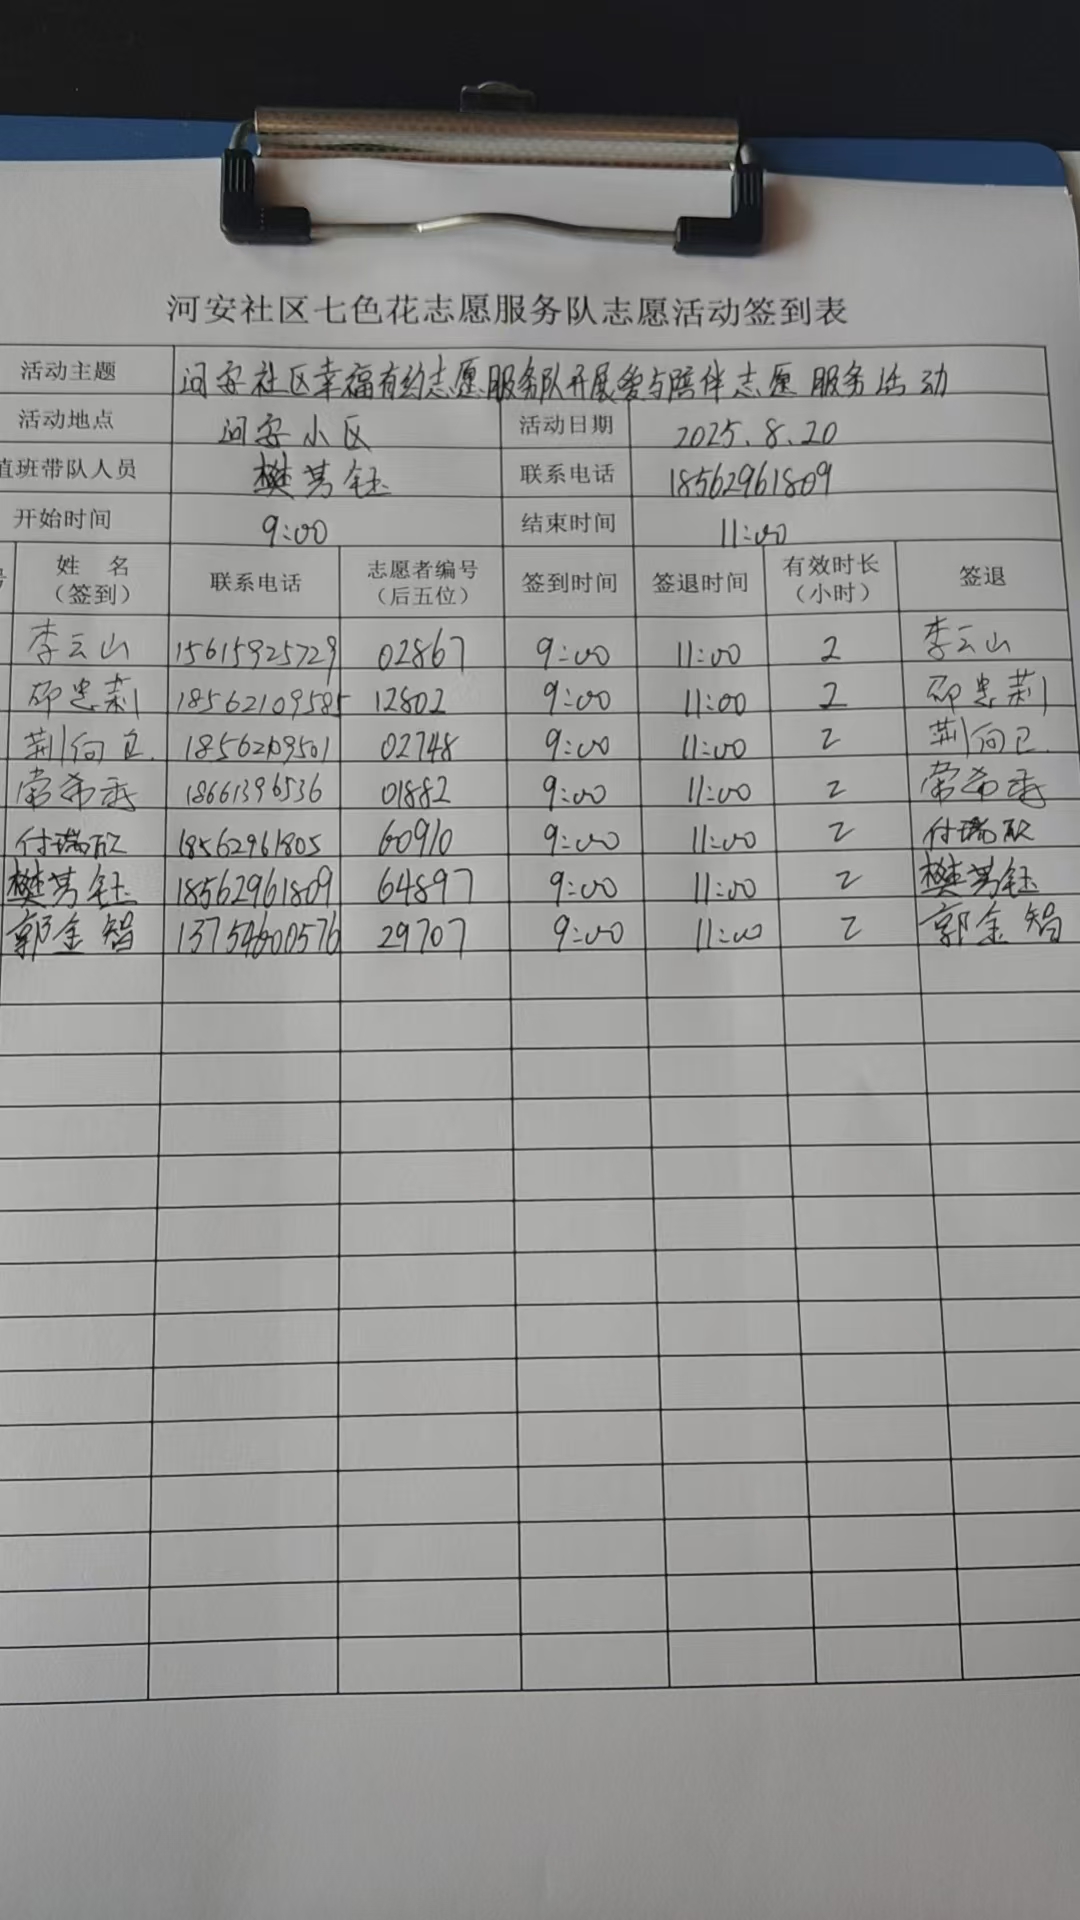 河安社区七色花志愿服务队志愿活动签到表
活动主题 河安社区幸福有约志愿服务队开展爱与陪伴志愿服务活动
活动地点 河安小区 活动日期 2025.8.20
值班带队人员 樊芳钰 联系电话 18562961809
开始时间 9:00 结束时间 11:00
姓 名（签到） 联系电话 志愿者编号（后五位） 签到时间 签退时间 有效时长（小时） 签退
李云山 15615925729 02867 9:00 11:00 2 李云山
邵忠莉 18562109585 12802 9:00 11:00 2 邵忠莉
荆向卫 18562109501 02748 9:00 11:00 2 荆向卫
常希 18661396536 01882 9:00 11:00 2 常希
付瑞欣 18562961805 60910 9:00 11:00 2 付瑞欣
樊芳钰 18562961809 64897 9:00 11:00 2 樊芳钰
郭金智 13754600576 29707 9:00 11:00 2 郭金智